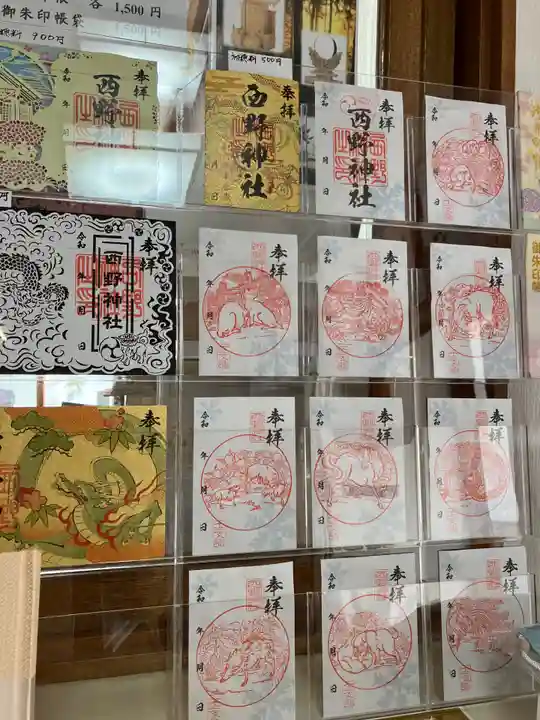 帳 各 1,500円
御朱印帳袋
初穂料 900円
初穂料 500円
奉拝
西野神社
令和
年
月
日
奉拝
西野神社
奉拝
西野神社
令和 年 月 日
奉拝
令和 年 月 日
奉拝
西野神社
令和 年 月 日
奉拝
令和 年 月 日
奉拝
令和 年 月 日
奉拝
令和 年 月 日
奉拝
奉拝
令和 年 月 日
奉拝
令和 年 月 日
奉拝
令和 年 月 日
奉拝
令和 年 月 日
奉拝
令和 年 月 日
奉拝
令和 年 月 日
御朱印